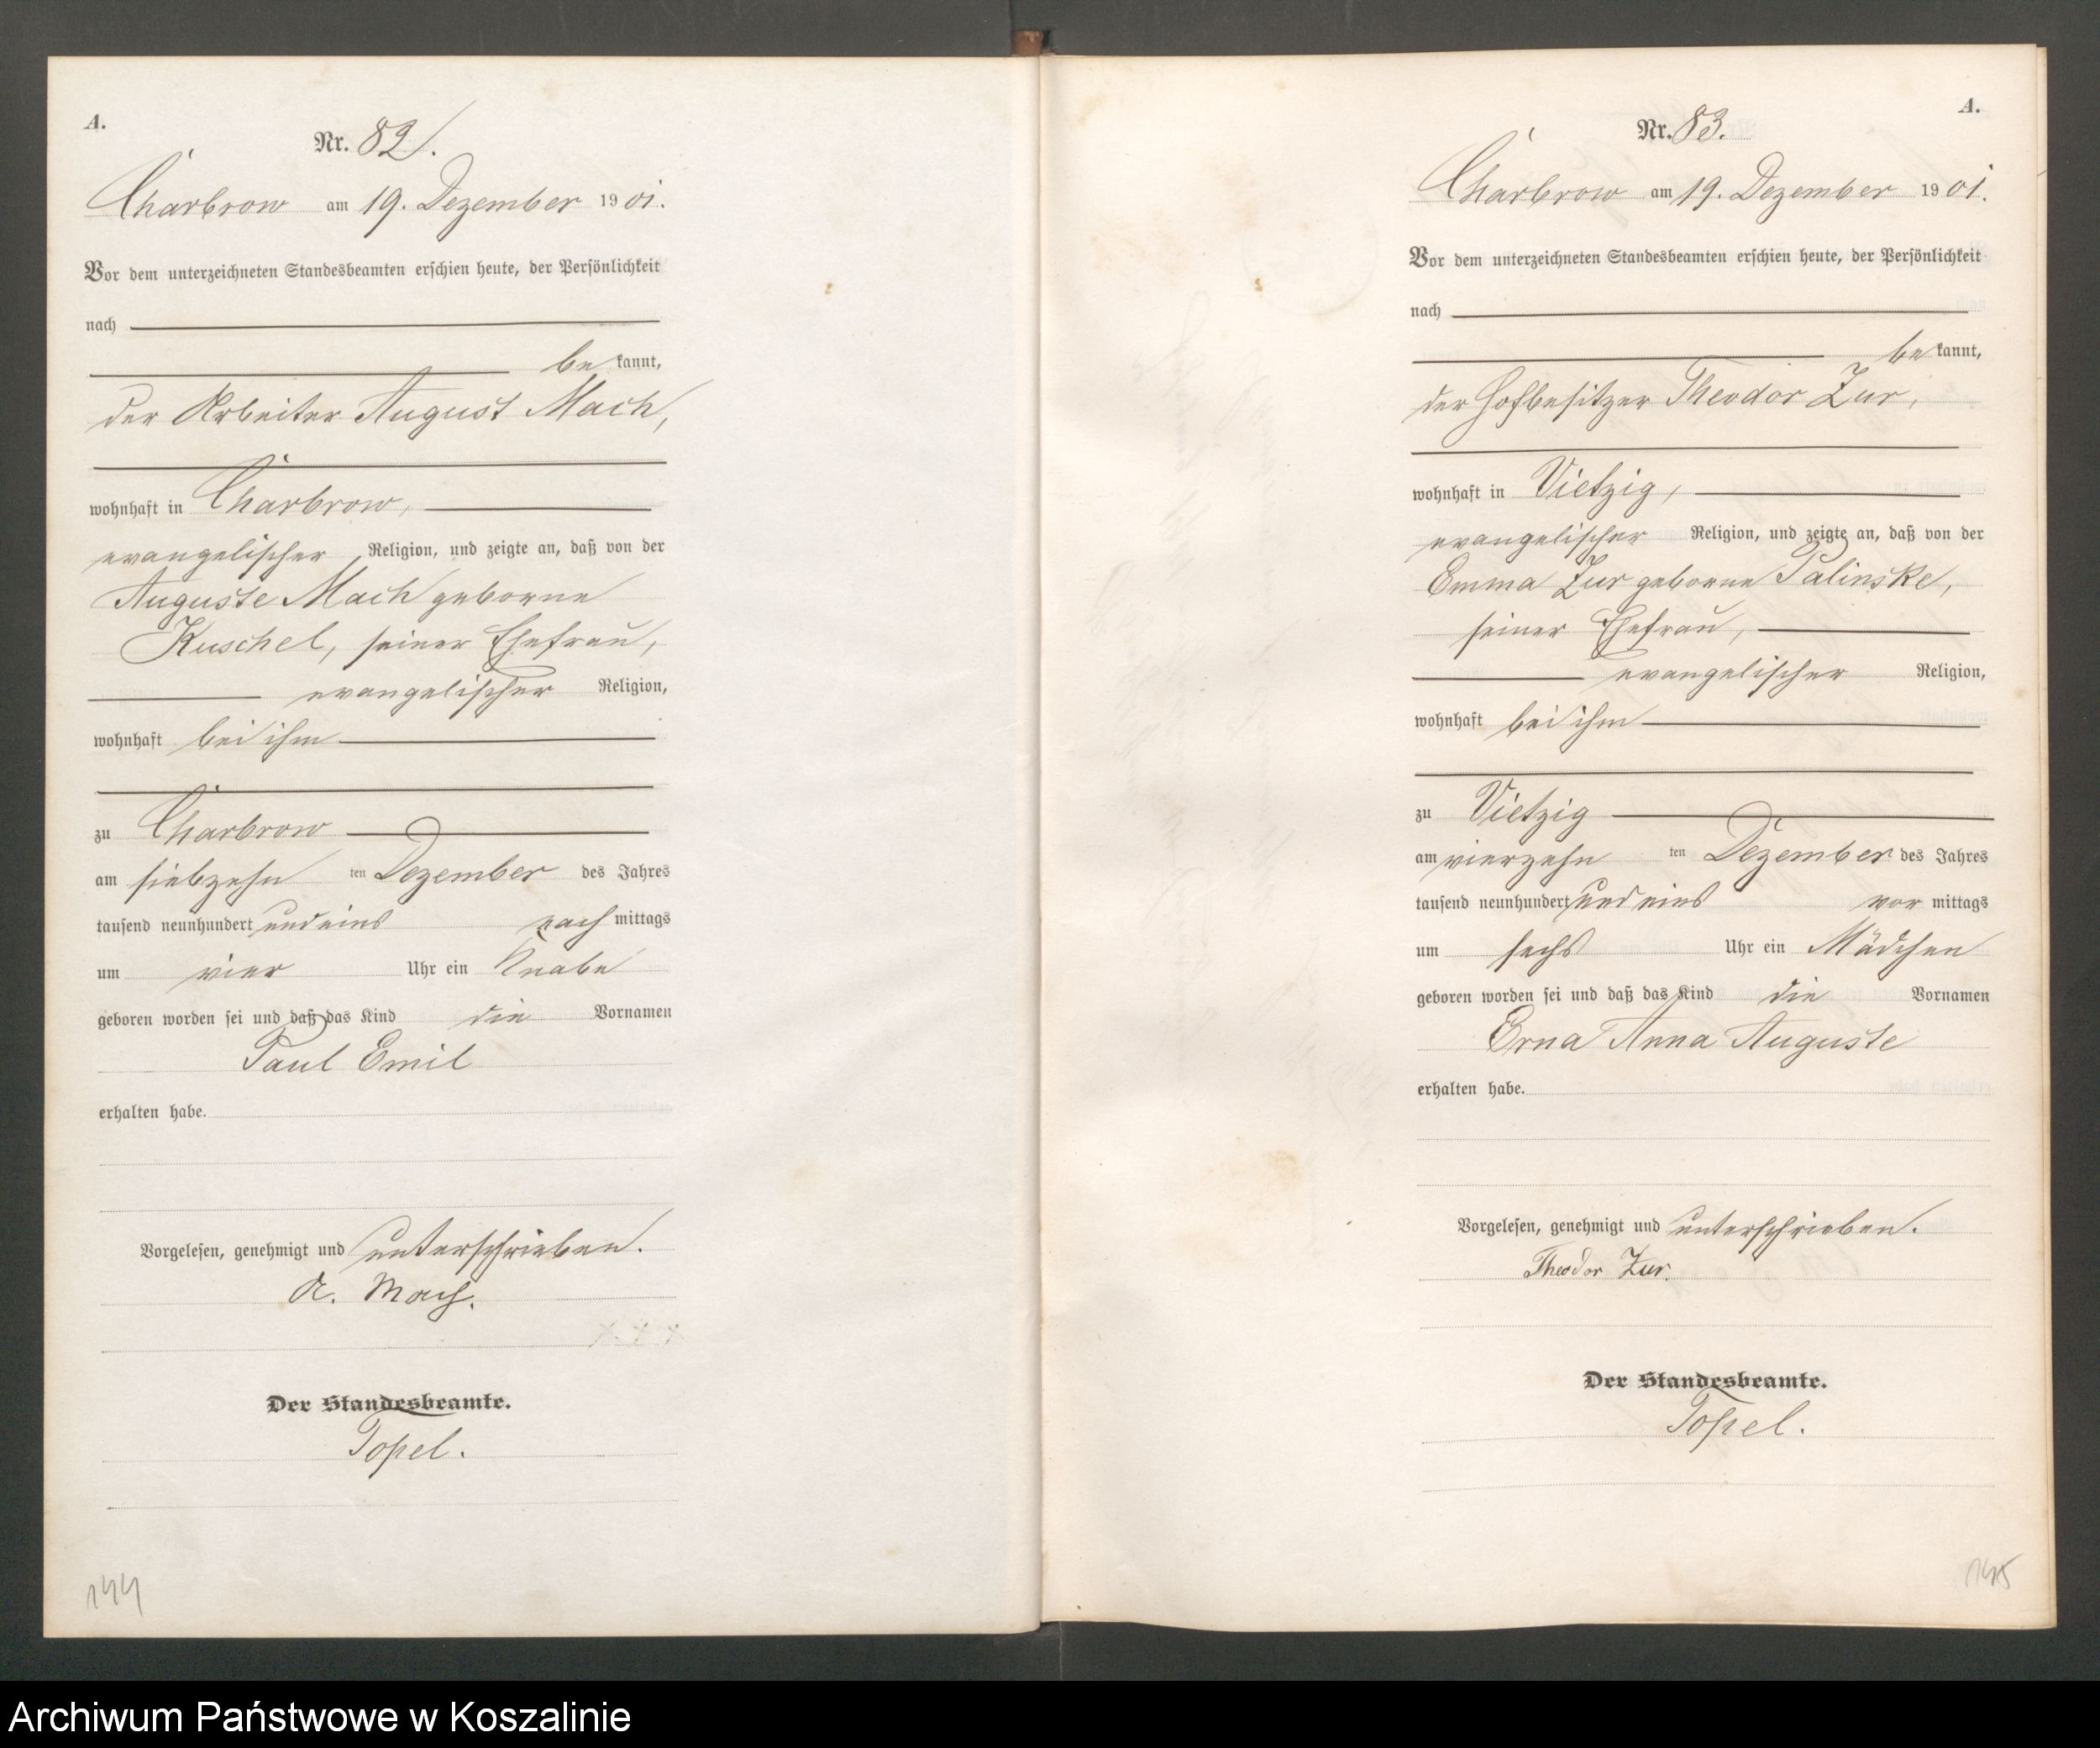 A.
Nr. 82.
Charbrow am 19. Dezember 1901.
Vor dem unterzeichneten Standesbeamten erschien heute, der Persönlichkeit
nach
be kannt,
der Arbeiter August Mach,
wohnhaft in Charbrow,
evangelischer Religion, und zeigte an, daß von der
Auguste Mach geborne
Kuschel, seiner Ehefrau,
evangelischer Religion,
wohnhaft bei ihm
zu Charbrow
am siebzehn ten Dezember des Jahres
tausend neunhundert und eins nach mittags
um vier Uhr ein Knabe
geboren worden sei und daß das Kind die Vornamen
Paul Emil
erhalten habe.
Vorgelesen, genehmigt und unterschrieben.
A. Mach.
Der Standesbeamte.
Topel.
144
A.
Nr. 83.
Charbrow am 19. Dezember 1901.
Vor dem unterzeichneten Standesbeamten erschien heute, der Persönlichkeit
nach
be kannt,
der Hofbesitzer Theodor Zur,
wohnhaft in Vietzig,
evangelischer Religion, und zeigte an, daß von der
Emma Zur geborne Palinske,
seiner Ehefrau,
evangelischer Religion,
wohnhaft bei ihm
zu Vietzig
am vierzehn ten Dezember des Jahres
tausend neunhundert und eins vor mittags
um sechs Uhr ein Mädchen
geboren worden sei und daß das Kind die Vornamen
Erna Anna Auguste
erhalten habe.
Vorgelesen, genehmigt und unterschrieben.
Theodor Zur.
Der Standesbeamte.
Topel.
145
Archiwum Państwowe w Koszalinie